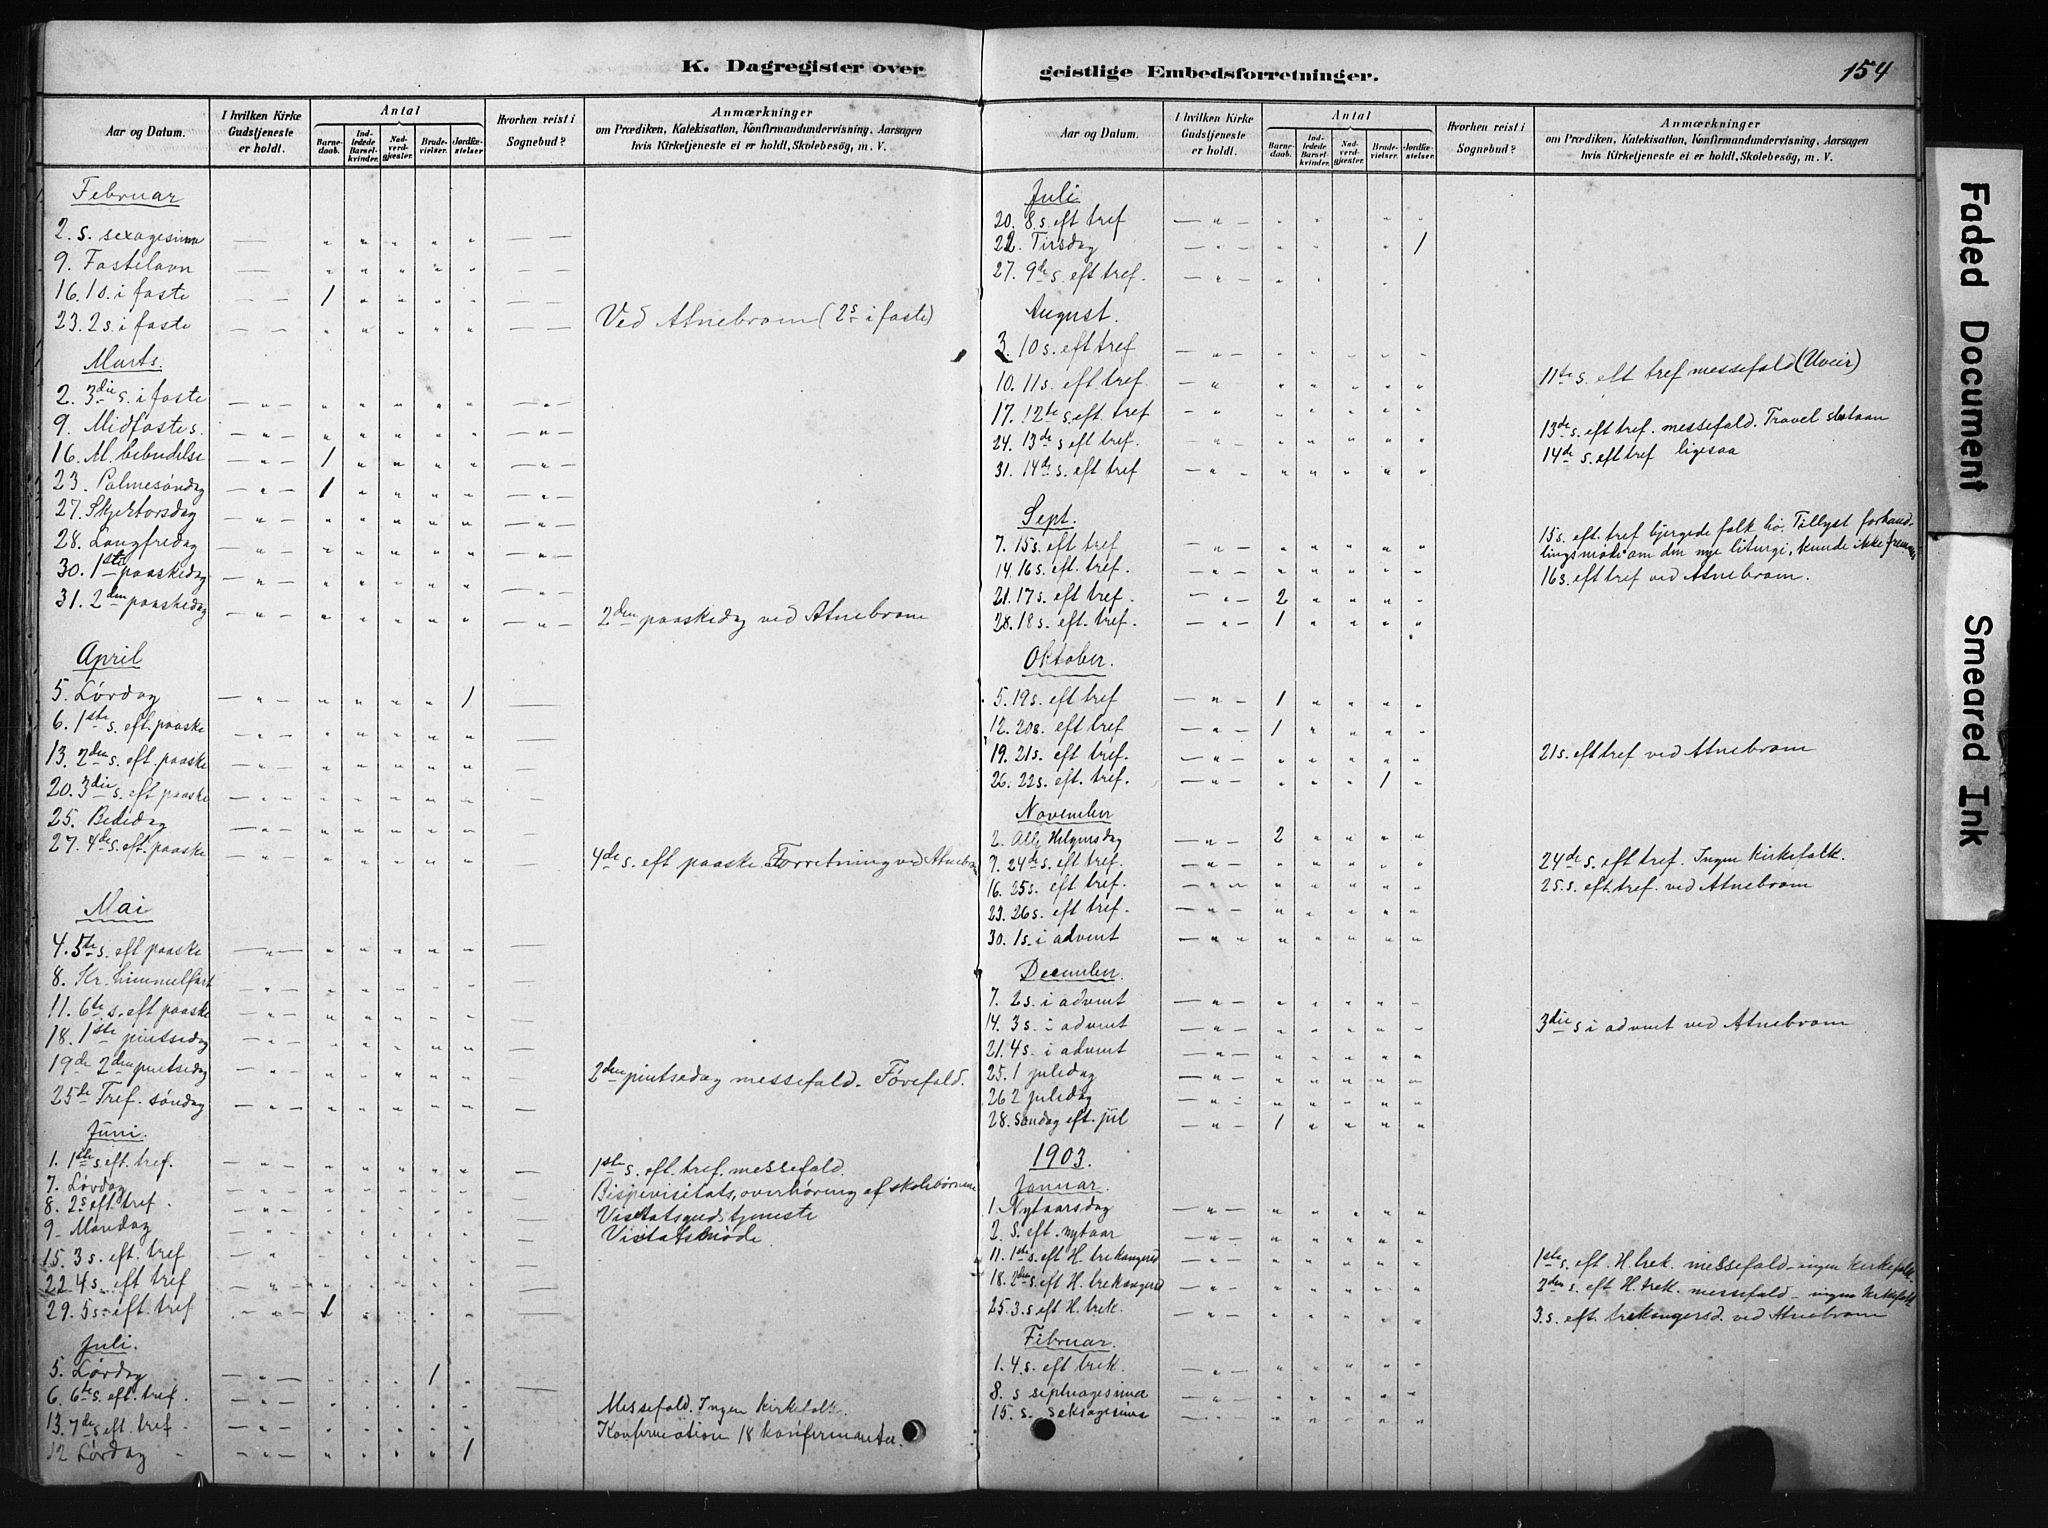 K. Dagregister over
Aar og Datum.
I hvilken Kirke Gudstjeneste er holdt.
Antal
Barnedaab.
Indledede Barselkvinder.
Nadverdgjester.
Brudevielser.
Jordfæstelser
Hvorhen reist i Sognebud?
Anmærkninger
om Prædiken, Katekisation, Konfirmandundervisning, Aarsagen
hvis Kirketjeneste ei er holdt, Skolebesøg, m. V.
Februar
2. s. sexagesima
9. Fastelavn
16. 1s. i faste 1
23. 2 s. i faste Ved Atnebrom (2s i faste)
Marts.
2. 3die s. i faste
9. Midfaste s.
16. M. bebudelse 1
23. Palmesøndag 1
27. Skjertorsdag
28. Langfredag
30. 1ste paaskedag
31. 2den paaskedag 2den paaskedag ved Atnebrom
April
5. Lørdag 1
6. 1ste s. eft. paaske
13. 2den s. eft. paaske
20. 3die s. eft paaske
25. Bededag
27. 4de s. eft. paaske 4de s. eft paaske. Forretning ved Atnebrom
Mai
4. 5te s. eft paaske
8. Kr. himmelfart
11. 6te s. eft paaske
18. 1ste pintsedag
19de 2den pintsedag 2den pintsedag messefald. Førefald.
25de Tref. søndag
Juni.
1. 1ste s. eft. tref. 1ste s. eft. tref. messefald.
7. Lørdag Bispevisitats, overhøring af skolebørnene
8. 2s eft tref. Visitatsgudstjeneste
9. Mandag Visitatsmøde.
15. 3 s. eft. tref
22. 4 s. eft tref
29. 5 s. eft. tref 1
Juli.
5. Lørdag 1
6. 6te s. eft. tref. Messefald. Ingen kirkefolk.
13. 7de s. eft tref Konfirmation 18 konfirmanter.
12 Lørdag 1
geistlige Embedsforretninger.
154
Aar og Datum.
I hvilken Kirke Gudstjeneste er holdt.
Antal
Barnedaab.
Indledede Barselkvinder.
Nadverdgjester.
Brudevielser.
Jordfæstelser.
Hvorhen reist i Sognebud?
Anmærkninger
om Prædiken, Katekisation, Konfirmandundervisning, Aarsagen
hvis Kirketjeneste ei er holdt, Skolebesøg, m. V.
Juli
20. 8 s. eft tref
22. Tirsdag 1
27. 9de s. eft tref.
August.
3. 10 s. eft tref
10. 11 s. eft tref. 11te s. eft tref messefald (Uveir)
17. 12te s. eft. tref
24. 13de s eft tref. 13de s. eft tref. messefald. Travel slotaan
31. 14de s. eft tref 14de s. eft tref ligesaa
Sept.
7. 15 s. eft tref 15 s. eft. tref bjergede folk hø. Tillyst forhand-
lingsmøde om den nye liturgi, kunde ikke fremmes
14. 16 s. eft. tref. 16 s. eft tref ved Atnebrom.
21. 17 s. eft. tref. 2
28. 18 s. eft. tref. 1
Oktober.
5. 19 s. eft tref 1
12. 20s. eft tref 1
19. 21s. eft tref. 21 s. eft tref ved Atnebrom
26. 22s. eft. tref. 1
November
2. Alle Helgensdag 2
9. 24de s. eft tref. 24de s. eft tref. Ingen Kirkefolk.
16. 25s. eft tref. 25. s. eft. tref. ved Atnebrom
23. 26 s. eft tref.
30. 1 s. i advent
December.
7. 2 s. i advent
14. 3 s. i advent 3die s i advent ved Atnebrom
21. 4 s. i advent
25. 1 juledag
26 2 juledag
28. Søndag eft. jul 1
1903.
Januar.
1. Nytaarsdag
2. S. eft. nytaar
11. 1ste s. eft H. trekongersd 1ste s. eft. H. trek. messefald - ingen kirkefolk.
18. 2den s. eft H. trekongersd 2den s. eft H. trek. messefald - ingen kirkefolk
25. 3. s eft H. trek. 3. s. eft. trekongersd. ved Atnebrom
Februar.
1. 4. s. eft trek.
8. s septuagesima
15. s. seksagesima
Faded Document
Smeared Ink